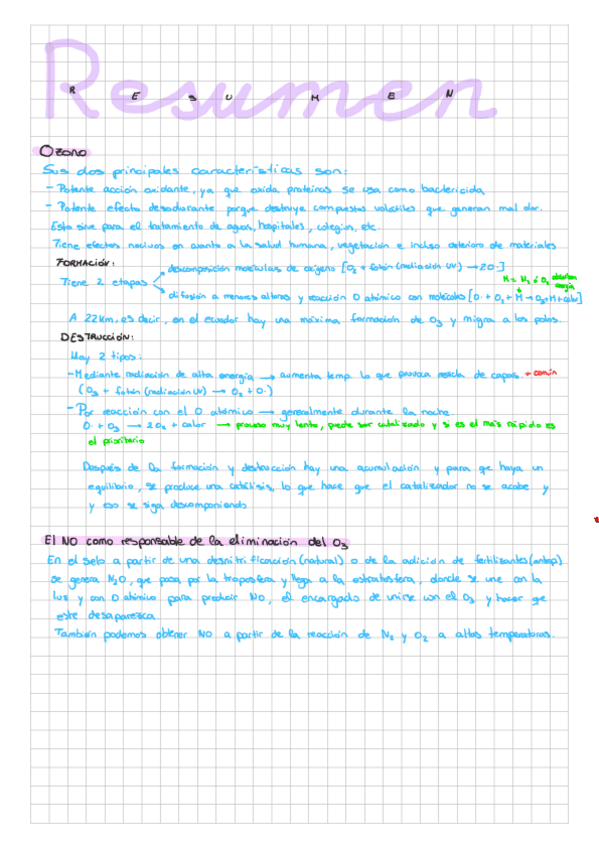 Resumen
R E S U M E N
Ozono
Sus dos principales características son:
- Potente acción oxidante, ya que oxida proteínas se usa como bactericida
- Potente efecto desodorante porque destruye compuestos volátiles que generan mal olor.
Esto sirve para el tratamiento de aguas, hospitales, colegios, etc.
Tiene efectos nocivos en cuanto a la salud humana, vegetación e incluso deterioro de materiales
FORMACIÓN:
descomposición moléculas de oxígeno [O₂ + fotón (radiación UV) → 2O·]
M = N₂ ó O₂ absorben energía
Tiene 2 etapas
difusión a menores alturas y reacción O atómico con moléculas [O· + O₂ + M → O₃ + M + calor]
A 22km, es decir, en el ecuador hay una máxima formación de O₃ y migra a los polos.
DESTRUCCIÓN:
Hay 2 tipos:
- Mediante radiación de alta energía → aumenta temp. lo que provoca mezcla de capas + común
(O₃ + fotón (radiación UV) → O₂ + O·)
- Por reacción con el O atómico → generalmente durante la noche.
O· + O₃ → 2O₂ + calor → proceso muy lento, puede ser catalizado y si es el más rápido es
el prioritario
Después de la formación y destrucción hay una acumulación y para que haya un
equilibrio, se produce una catálisis, lo que hace que el catalizador no se acabe y
y eso se siga descomponiendo
El NO como responsable de la eliminación del O₃
En el suelo a partir de una desnitrificación (natural) o de la adición de fertilizantes (antrop)
se genera N₂O, que pasa por la troposfera y llega a la estratosfera, donde se une con la
luz y con O atómico para producir NO, el encargado de unirse con el O₃ y hacer que
este desaparezca.
También podemos obtener NO a partir de la reacción de N₂ y O₂ a altas temperaturas.